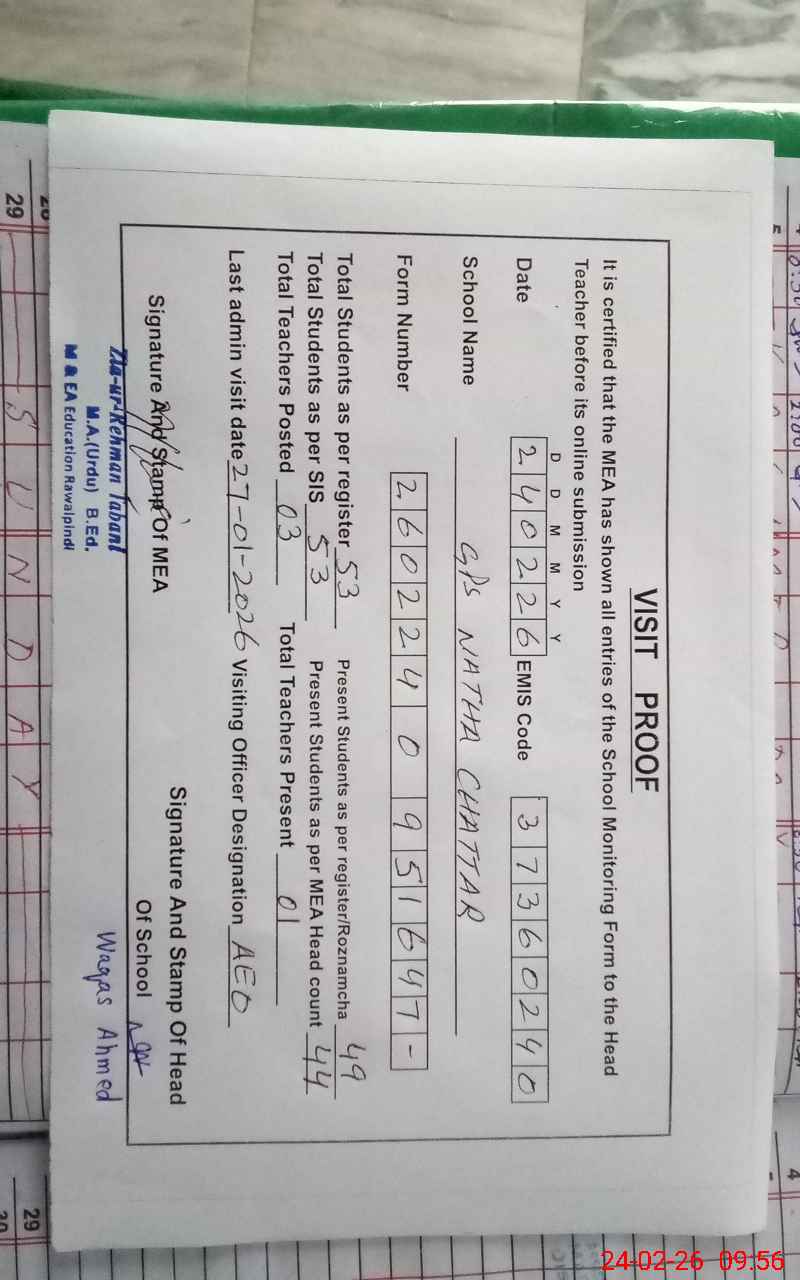 VISIT PROOF
It is certified that the MEA has shown all entries of the School Monitoring Form to the Head
Teacher before its online submission
D D M M Y Y
Date 2 4 0 2 2 6 EMIS Code 3 7 3 6 0 2 4 0
School Name GPS NATHA CHATTAR
Form Number 2 6 0 2 2 4 0 9 5 1 6 4 7 -
Total Students as per register 53 Present Students as per register/Roznamcha 49
Total Students as per SIS 53 Present Students as per MEA Head count 44
Total Teachers Posted 03 Total Teachers Present 01
Last admin visit date 27-01-2026 Visiting Officer Designation AEO
Signature And Stamp Of MEA
Signature And Stamp Of Head
Of School
Zia-ur-Rehman Tabani
M.A.(Urdu) B.Ed.
M & EA Education Rawalpindi
Waqas Ahmed
29 S U N D A Y
29
4
24-02-26 09:56